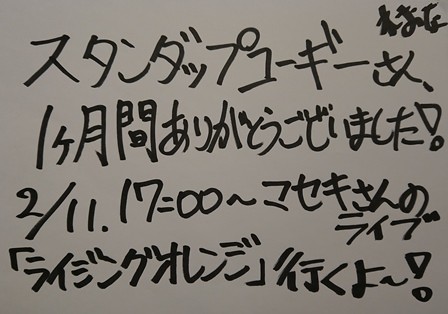 スタンダップコーギー
1ヶ月間ありがとうございました!
2/11. 17:00〜コセキさんのライブ
「ライジングオレンジ」行くよ〜!